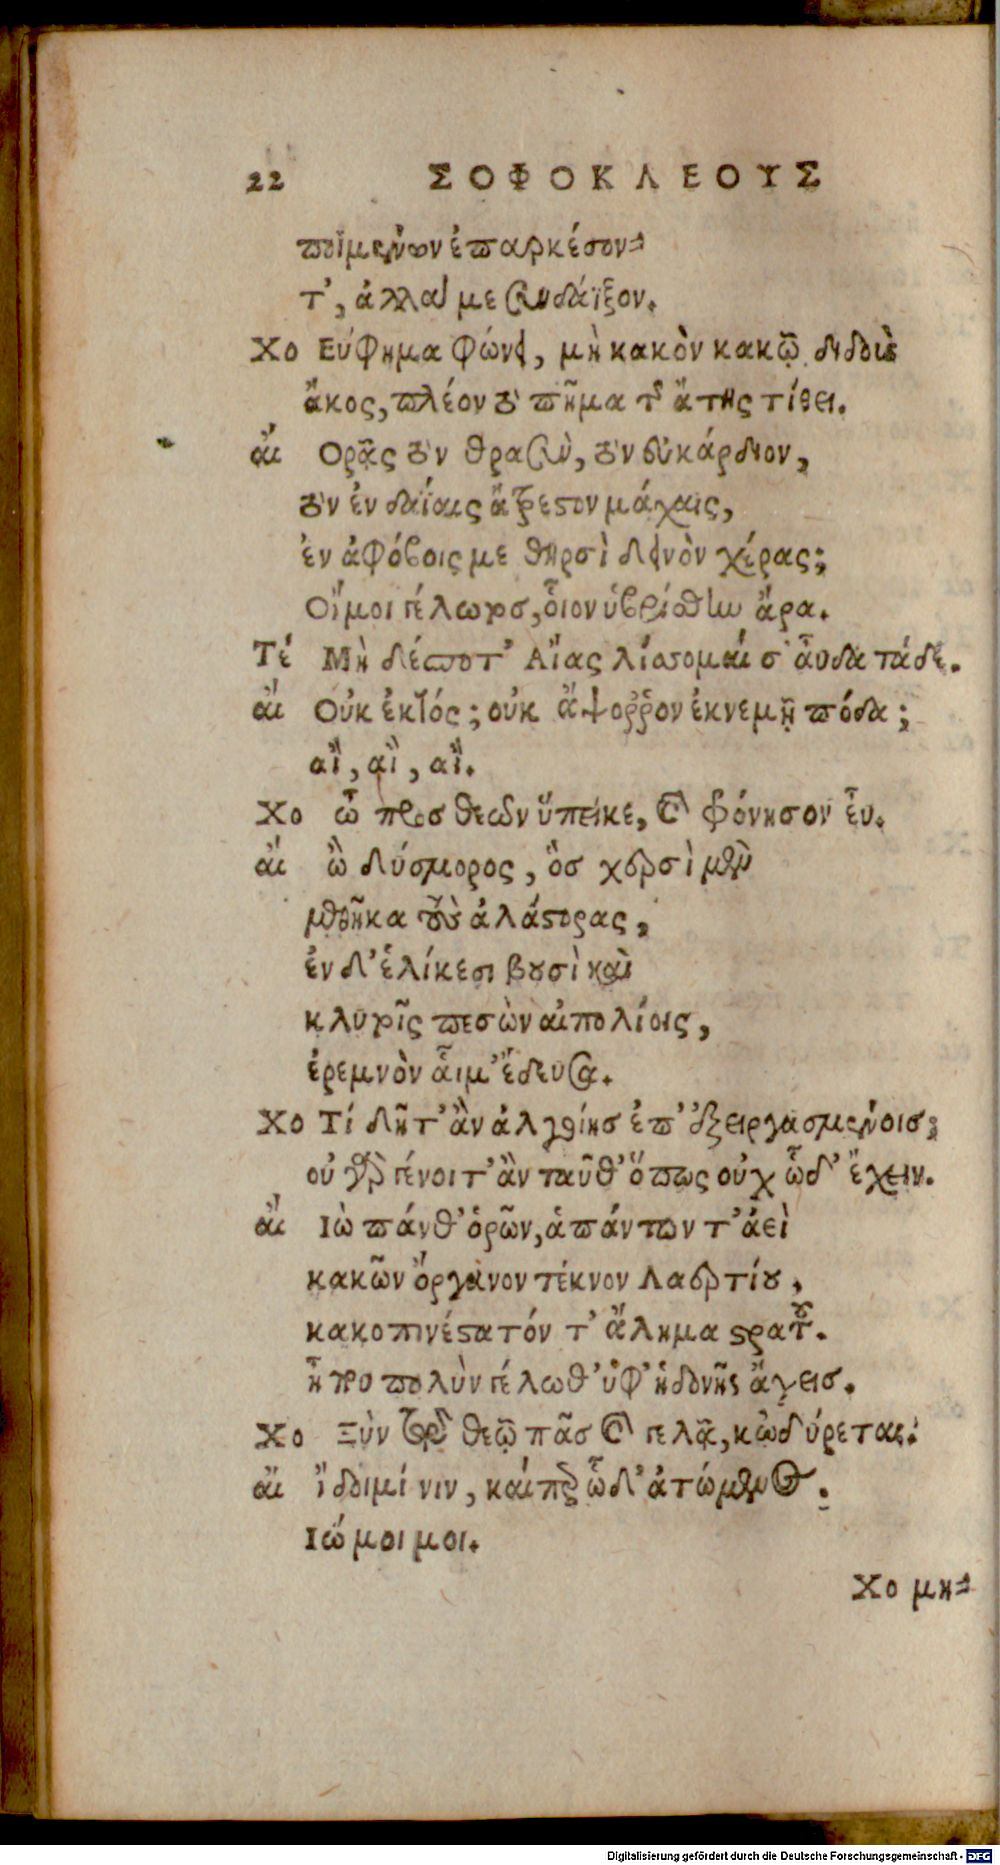 22 ΣΟΦΟΚΛΕΟΥΣ
ποϊμένων ἐπαρκέσον-
τ', ἀλλά με συνδάϊξον.
Χο Εὔφημα φώνει, μὴ κακὸν κακῷ διδοὺς
ἄκος, πλέον τὸ πῆμα τῆς ἄτης τίθει.
αἴ Ορᾷς τὸν θρασὺ, τὸν εὐκάρδιον,
τὸν ἐν δαΐαις ἄτρεστον μάχαις,
ἐν ἀφόβοις με θηρσὶ δεινὸν χέρας;
Οἴμοι γέλωτοσ, οἷον ὑβρίσθην ἄρα.
Τέ Μὴ δέσποτ' Αἴας λίσσομαί σ' αὖδα τάδε.
αἴ Οὐκ ἐκτός; οὐκ ἄψοῤῥον ἐκνεμῇ πόδα;
αἲ, αἲ, αἲ.
Χο ὦ προσ θεῶν ὕπεικε, καὶ φρόνησον εὖ.
αἴ ὢ δύσμορος, ὃσ χερσὶ μὲν
μεθῆκα τοὺς ἀλάστορας,
ἐν δ' ἑλίκεσι βουσὶ καὶ
κλυτοῖς πεσὼν αἰπολίοις,
ἐρεμνὸν αἷμ' ἔδευσα.
Χο Τί δῆτ' ἂν ἀλγοίησ ἐπ' ἐξειργασμένοισ;
οὐ γὰρ γένοιτ' ἂν ταῦθ' ὅπως οὐχ ὧδ' ἔχειν.
αἴ Ιὼ πάνθ' ὁρῶν, ἁπάντων τ' ἀεὶ
κακῶν ὄργανον τέκνον Λαερτίου,
κακοπινέστατόν τ' ἄλημα στρατοῦ.
ἦ που πολὺν γέλωθ' ὑφ' ἡδονῆς ἄγεισ.
Χο Ξὺν τῷ θεῷ πᾶσ καὶ γελᾷ, κὠδύρεται.
αἴ ἴδοιμί νιν, καίπερ ὧδ' ἀτώμενος.
Ιώ μοι μοι.
Χο μη-
Digitalisierung gefördert durch die Deutsche Forschungsgemeinschaft - DFG